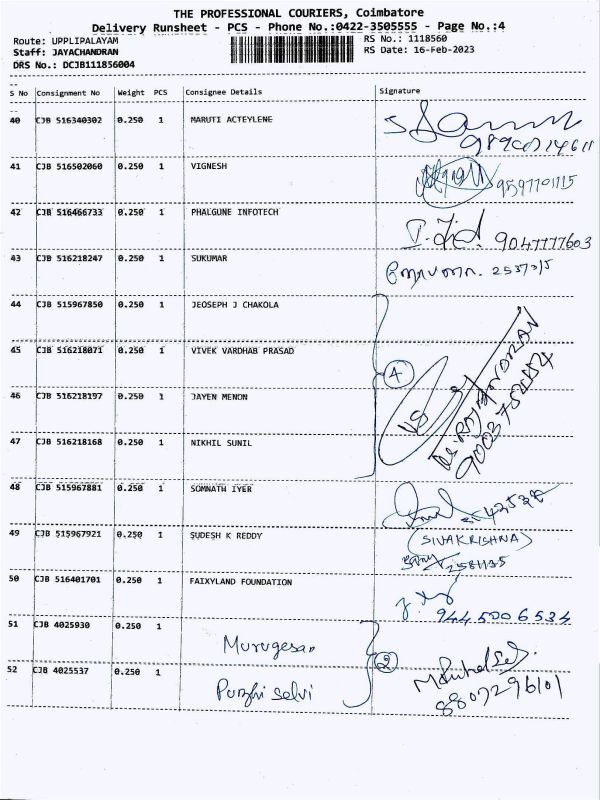 THE PROFESSIONAL COURIERS, Coimbatore
Delivery Runsheet - PCS - Phone No.:0422-3505555 - Page No.:4
Route: UPPLIPALAYAM
RS No.: 1118560
Staff: JAYACHANDRAN
RS Date: 16-Feb-2023
DRS No.: DCJB111856004
S No Consignment No Weight PCS Consignee Details Signature
40 CJB 516340302 0.250 1 MARUTI ACTEYLENE
41 CJB 516502060 0.250 1 VIGNESH 9597701115
42 CJB 516466733 0.250 1 PHALGUNE INFOTECH 9047777603
43 CJB 516218247 0.250 1 SUKUMAR
44 CJB 515967850 0.250 1 JEOSEPH J CHAKOLA
45 CJB 516218071 0.250 1 VIVEK VARDHAB PRASAD
4
46 CJB 516218197 0.250 1 JAYEN MENON
47 CJB 516218168 0.250 1 NIKHIL SUNIL
48 CJB 515967881 0.250 1 SOMNATH IYER
49 CJB 515967921 0.250 1 SUDESH K REDDY (SIVAKRISHNA)
2581135
50 CJB 516401701 0.250 1 FAIXYLAND FOUNDATION
9445006534
51 CJB 4025930 0.250 1 Murugesan
2
52 CJB 4025537 0.250 1 selvi
8807296101